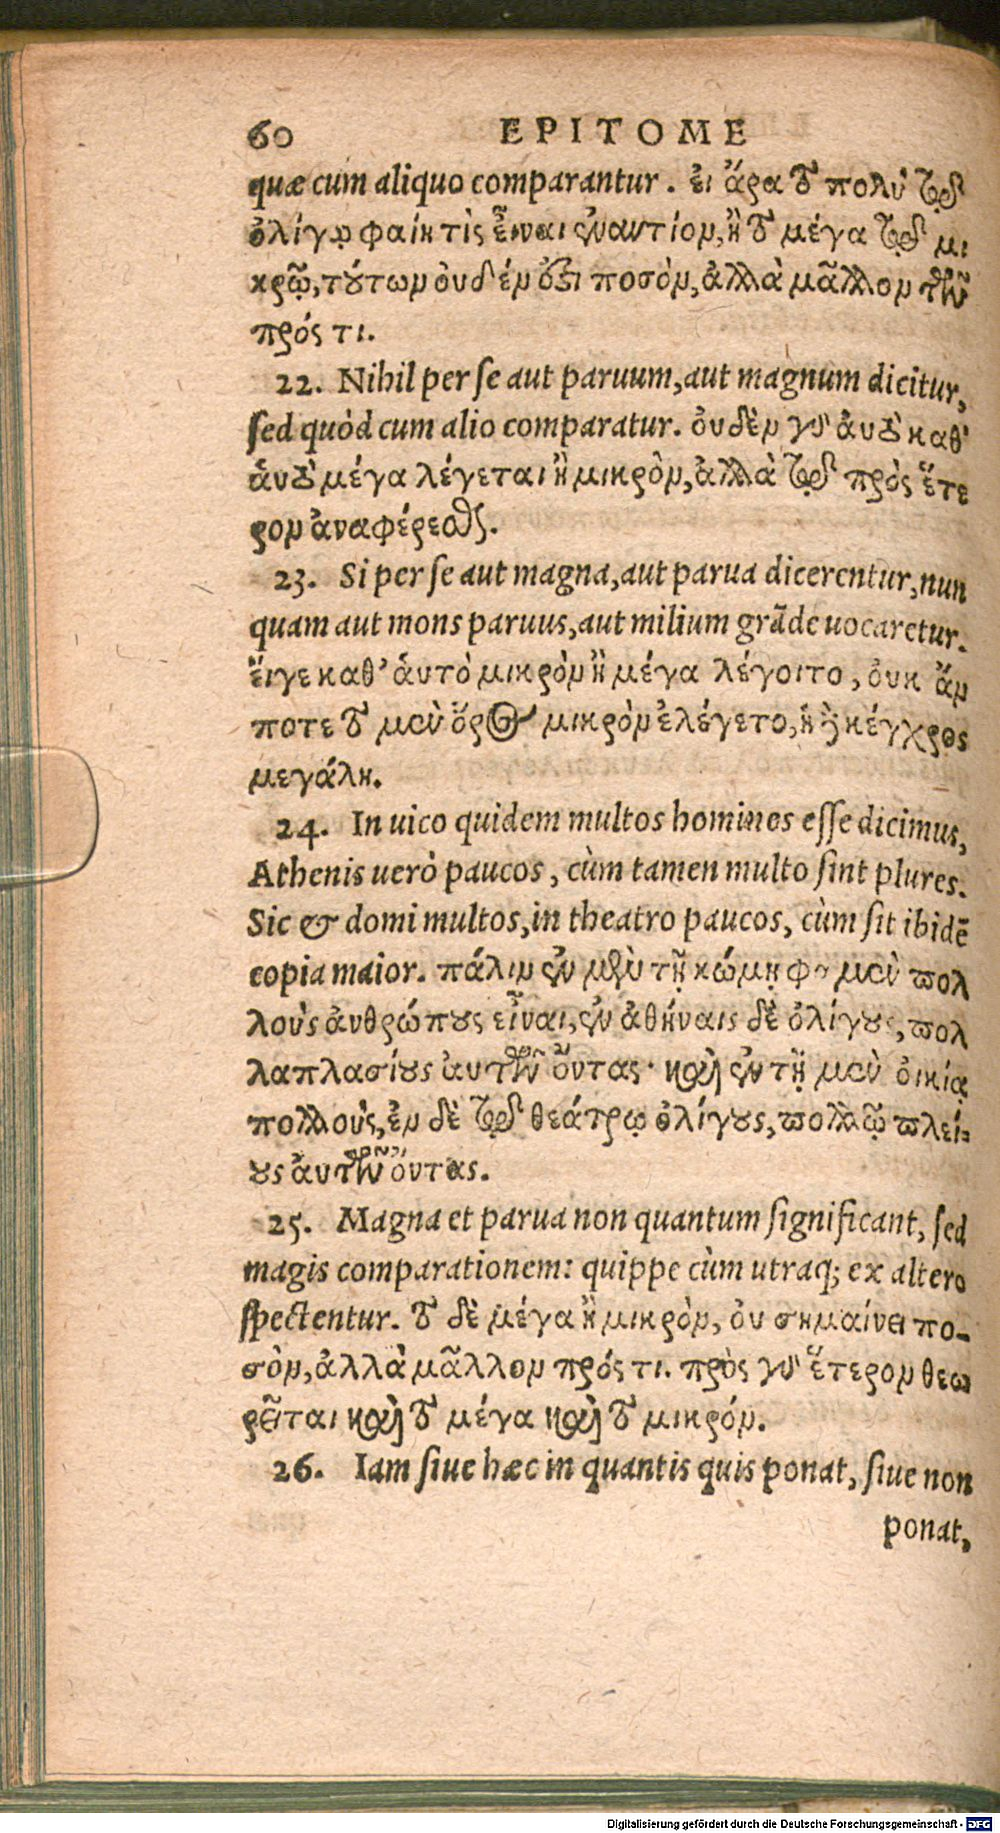 60 EPITOME
quæ cum aliquo comparantur. ἐι ἄρα τὸ πολὺ τῷ
ὀλίγῳ φαίη τὶς εἶναι ἐναντίον, ἢ τὸ μέγα τῷ μι
κρῷ, τούτων ὀυδέν ὅξι ποσὸν, ἀλλὰ μᾶλλον τῶν
πρός τι.
22. Nihil per se aut paruum, aut magnum dicitur,
sed quòd cum alio comparatur. ὀυδὲν γὰρ ἀυτὸ καθ'
ἁυτὸ μέγα λέγεται ἢ μικρὸν, ἀλλὰ τῷ πρὸς ἕτε
ρον ἀναφέρεσθαι.
23. Si per se aut magna, aut parua dicerentur, nun
quam aut mons paruus, aut milium grāde uocaretur.
ἔιγε καθ' ἁυτὸ μικρὸν ἢ μέγα λέγοιτο, ὀυκ ἄν
ποτε τὸ μὲν ὄρος μικρὸν ἐλέγετο, ἡ δὲ κέγχρος
μεγάλη.
24. In uico quidem multos homines esse dicimus,
Athenis uerò paucos, cùm tamen multo sint plures.
Sic & domi multos, in theatro paucos, cùm sit ibidē
copia maior. πάλιν ἐν μὲν τῇ κώμῃ φαμὲν πολ
λοὺς ἀνθρώπους εἶναι, ἐν ἀθήναις δὲ ὀλίγους, πολ
λαπλασίους ἀυτῶν ὄντας· καὶ ἐν τῇ μὲν ὀικίᾳ
πολλοὺς, ἐν δὲ τῷ θεάτρῳ ὀλίγους, πολλῷ πλεί-
ους ἀυτῶν ὄντας.
25. Magna et parua non quantum significant, sed
magis comparationem: quippe cùm utraq; ex altero
spectentur. τὸ δὲ μέγα ἢ μικρὸν, ὀυ σημαίνει πο-
σὸν, ἀλλὰ μᾶλλον πρός τι. πρὸς γὰρ ἕτερον θεω
ρεῖται καὶ τὸ μέγα καὶ τὸ μικρόν.
26. Iam siue hæc in quantis quis ponat, siue non
ponat,
Digitalisierung gefördert durch die Deutsche Forschungsgemeinschaft - DFG